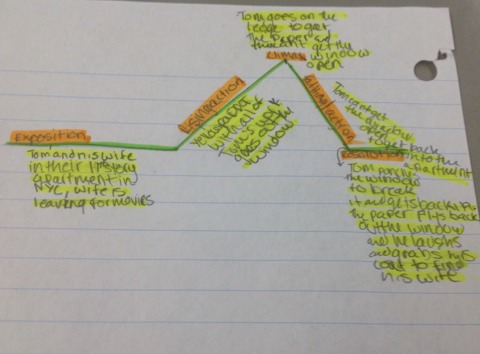 Tom goes on the
ledge to get
the paper and
thought get the
climax window
open
Rising action
falling action
Exposition
Tom and his wife
in their 11 story
apartment in
NYC, wife is
leaving for movies
Yellow paper
with all of
Tom's work
goes out the
window
Tom cant get
the window
open to
get back
into the
apartment
Resolution
Tom punches
the window
to break
it and gets back in
the paper flys back
out the window
and he laughs
and grabs his
coat to find
his wife